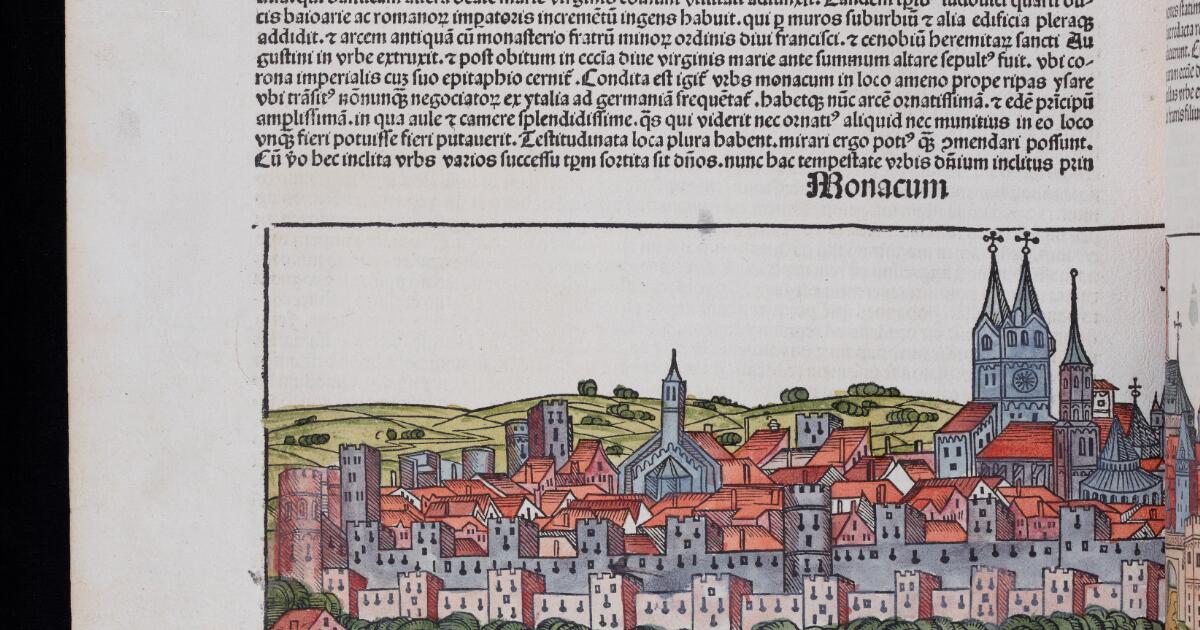 cis baioarie ac romanoꝝ imꝑatoris incremẽtũ ingens habuit. qui ꝑ muros suburbiũ ⁊ alia edificia pleraqꝫ
addidit. ⁊ arcem antiquã cũ monasterio fratrũ minoꝝ ordinis diui francisci. ⁊ cenobiũ heremitaꝝ sancti Au
gustini in vrbe extruxit. ⁊ post obitum in eccĩa diue virginis marie ante summum altare sepultꝰ fuit. vbi co-
rona imperialis cuꝫ suo epitaphio cernit̃. Condita est igit̃ vrbs monacum in loco ameno prope ripas ysare
vbi trãsitꝰ nõnunqꝫ negociatoꝝ ex ytalia ad germaniã frequẽtat̃. habetqꝫ nũc arcẽ ornatissimã. ⁊ edẽ prĩcipũ
amplissimã. in qua aule ⁊ camere splendidissime. q̃s qui viderit nec ornatiꝰ aliquid nec munitius in eo loco
vnqꝫ fieri potuisse fieri putauerit. Testitudinata loca plura habent. mirari ergo potiꝰ qꝫ ꝯmendari possunt.
Cũ ꝟo hec inclita vrbs varios successu tꝑm sortita sit dños. nunc hac tempestate vrbis dñium inclitus prin
Monacum